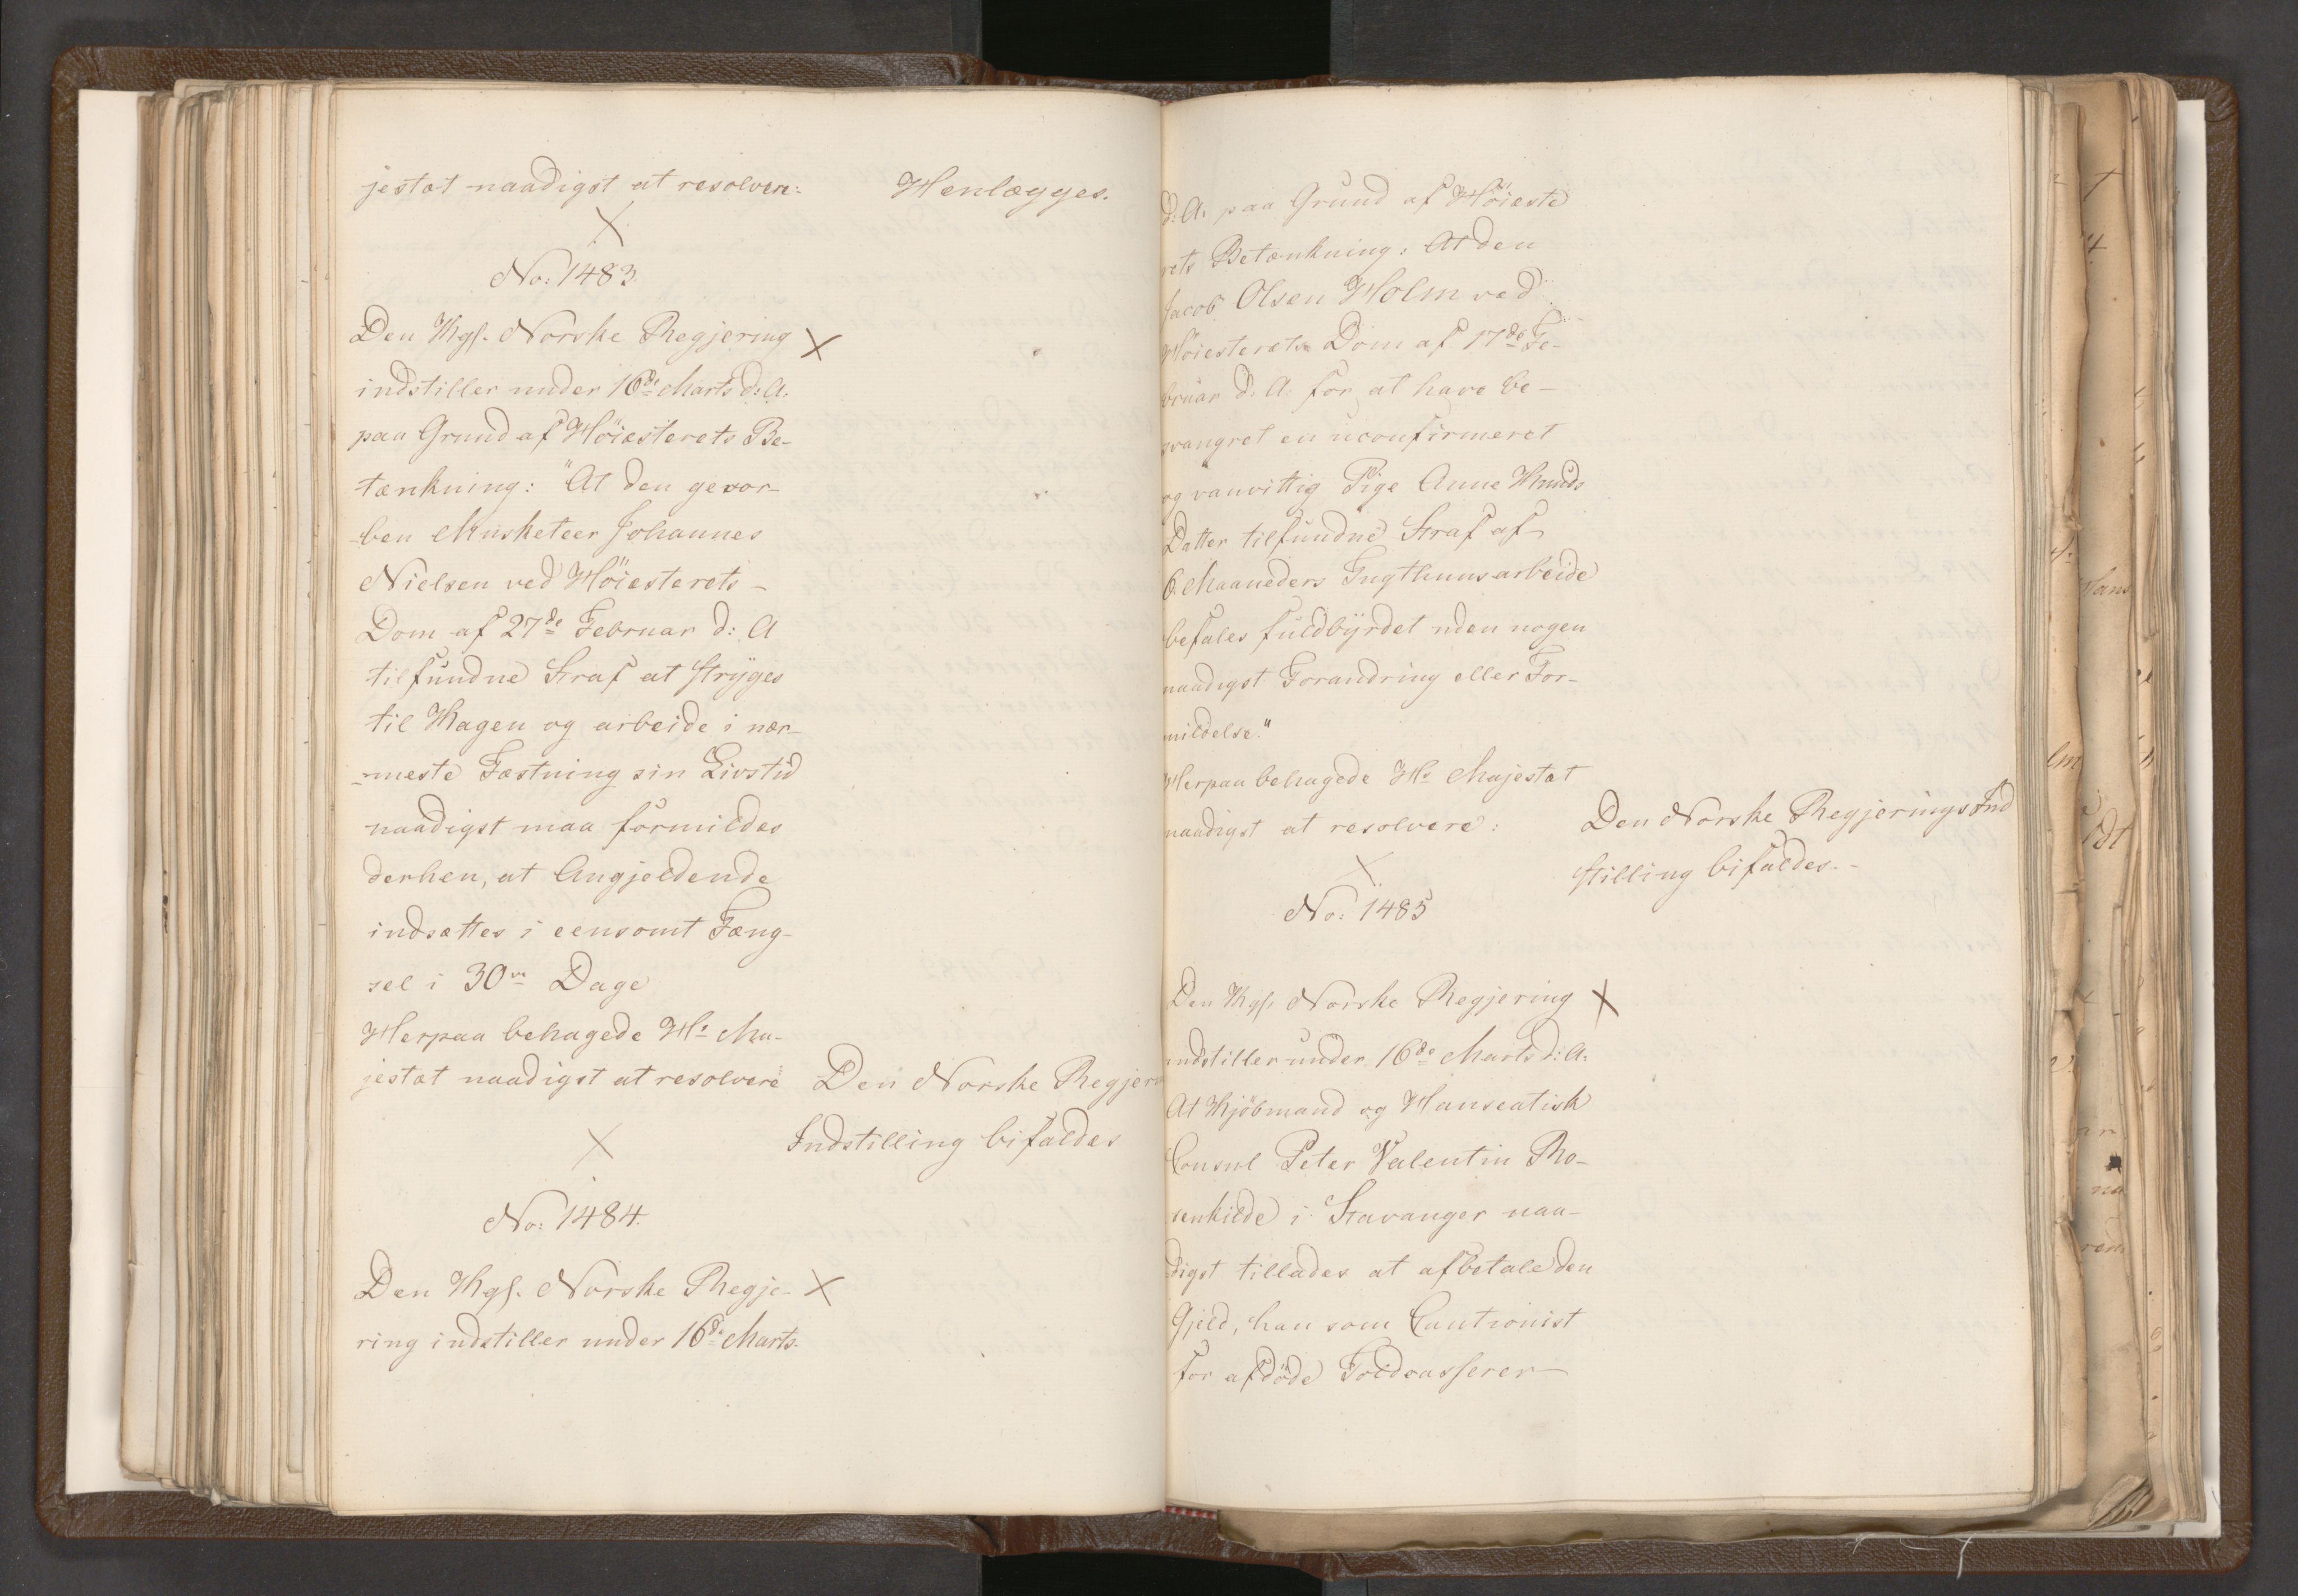 jestæt naadigst at resolvere:
Henlægges.
No: 1483.
Den Kgl. Norske Regjering
indstiller under 16de Marts d: A.
paa Grund af Höiesterets Be-
tænkning: "At den gevor-
ben Musketeer Johannes
Nielsen ved Höiesterets
Dom af 27de Februar d: A
tilfundne Straf at stryges
til Kagen og arbeide i nær-
meste Fæstning sin Livstid
naadigst maa formildes
derhen, at Angjeldende
indsættes i eensomt Fæng-
sel i 30ve Dage
Herpaa behagede Hs Ma-
jestæt naadigst at resolvere
Den Norske Regjer
Indstilling bifaldes
No: 1484.
Den Kgl. Norske Regje-
ring indstiller under 16de Marts
d: A. paa Grund af Höieste
rets Betænkning: At den
Jacob Olsen Holm ved
Höiesterets Dom af 17de Fe-
bruar d. A. for at have be-
svangret en uconfirmeret
og vanvittig Pige Anne Knuds
Datter tilfundne Straf af
6 Maaneders Tugthuusarbeide
befales fuldbyrdet uden nogen
naadigst Forandring eller For-
mildelse."
Herpaa behagede Hs Majestæt
naadigst at resolvere:
Den Norske Regjerings Ind
stilling bifaldes.-
No: 1485
Den Kgl. Norske Regjering
indstiller under 16de Marts d: A:
At Kjöbmand og Hanseatisk
Consul Peter Valentin Ro-
senkilde i Stavanger naa-
digst tillades at afbetale den
Gjeld, han som Cautionist
for afdöde Toldcasserer